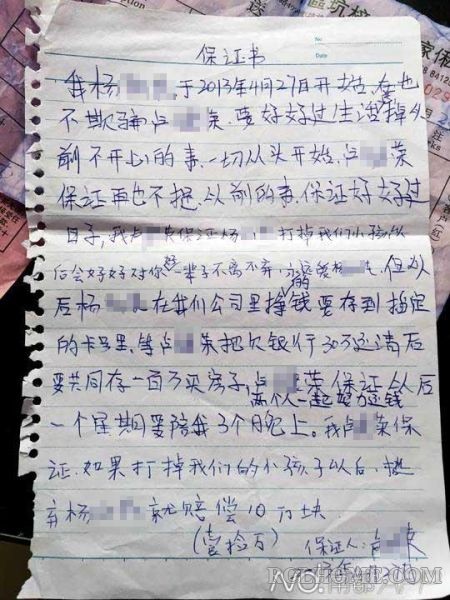 保证书
No.
Date
我杨 于2013年4月27日开始,在也
不欺骗卢 荣,要好好过生活掉从
前不开心的事,一切从头开始,卢 荣
保证再也不把从前的事,保证好好过
日子,我卢 荣保证杨 打掉我们小孩以
后会好好对你好一辈子不离不弃,永远的爱杨 ,但以
后杨 在我们公司里挣钱要存到指定
的卡号里,等卢 荣把欠银行30万还清后
要共同存一百万买房子,卢 荣保证从后
两个人一起努力还钱
一个星期要陪我3个晚上。我卢 荣保
证,如果打掉我们的小孩子以后,抛
弃杨 就赔偿10万块
(壹拾万) 保证人:卢 荣